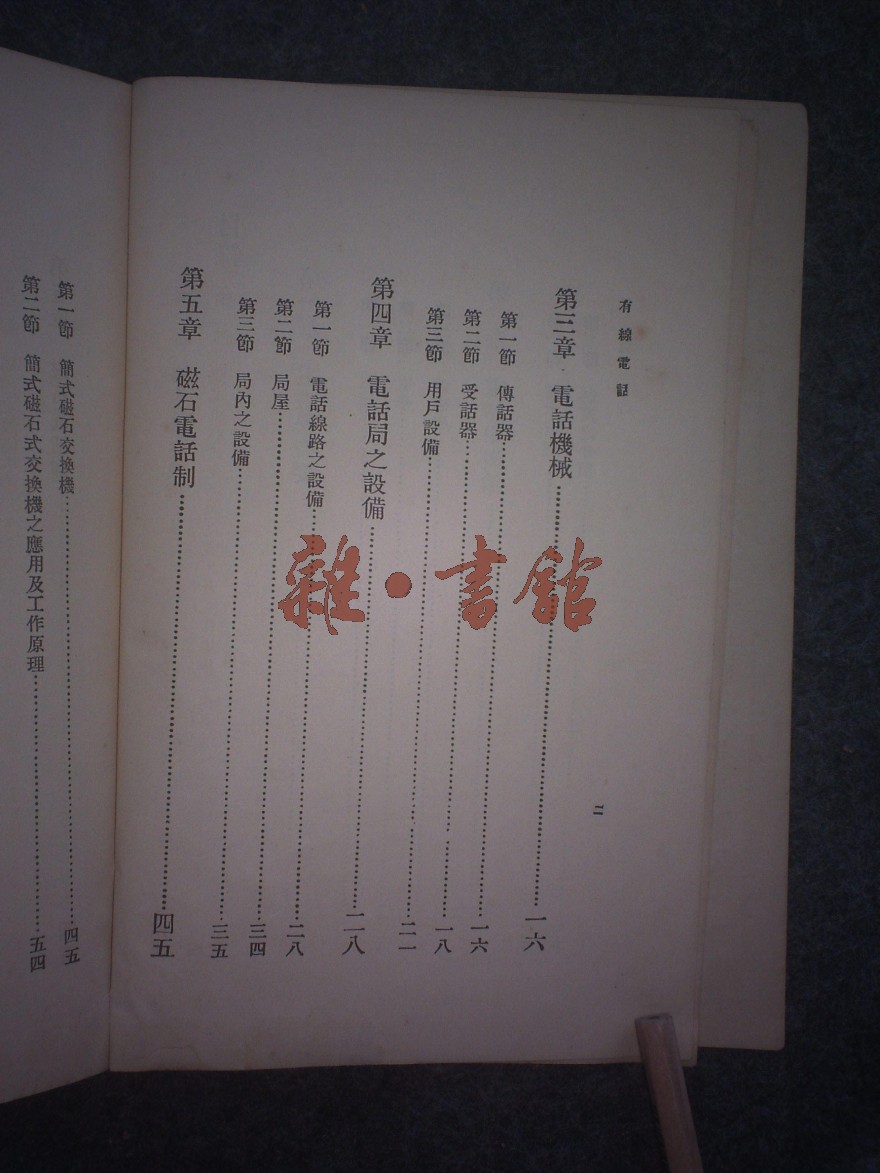 有線電話
二
第三章 電話機械……一六
第一節 傳話器……一六
第二節 受話器……一八
第三節 用戶設備……二一
第四章 電話局之設備……二八
第一節 電話線路之設備……二八
第二節 局屋……三四
第三節 局內之設備……三五
第五章 磁石電話制……四五
第一節 簡式磁石交換機……四五
第二節 簡式磁石式交換機之應用及工作原理……五四
雜·書館